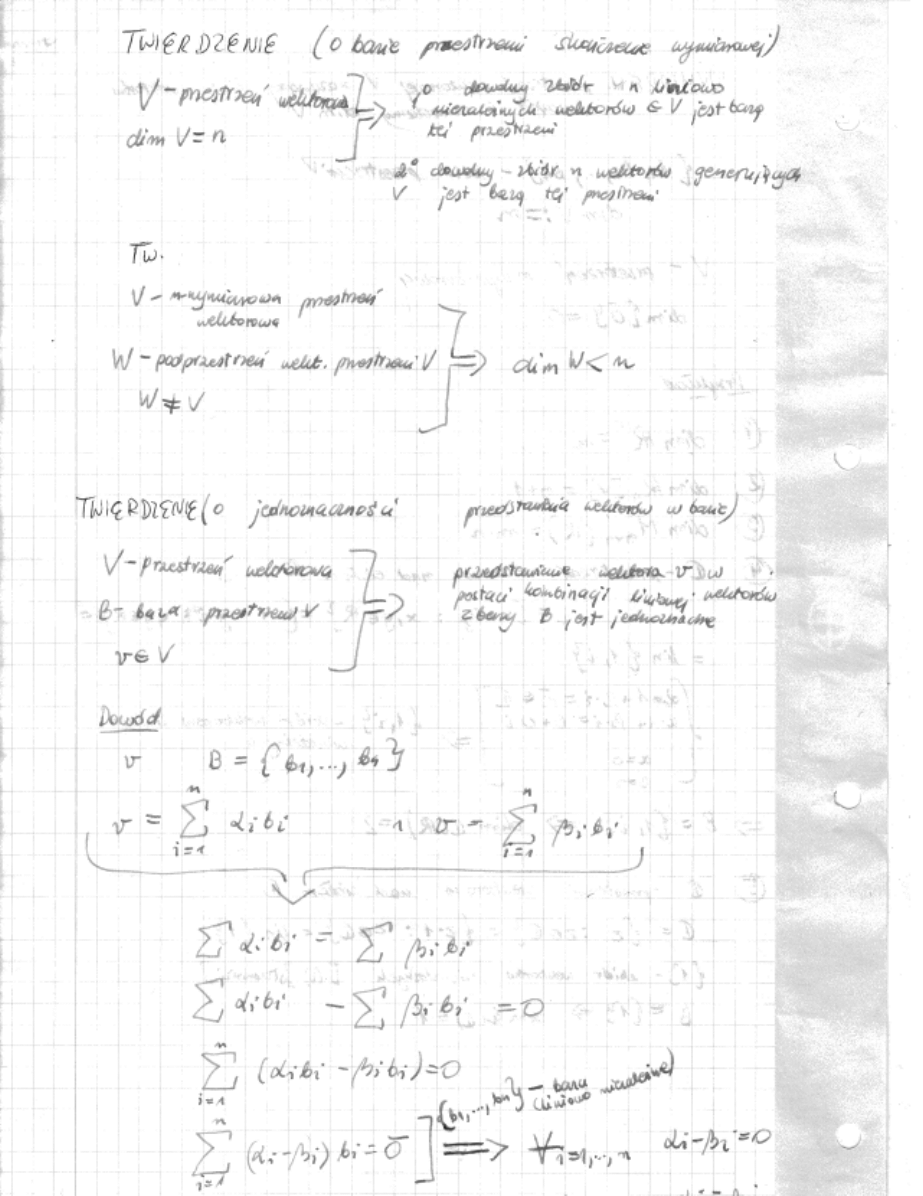 TWIERDZENIE (o bazie przestrzeni skończenie wymiarowej)
V - przestrzeń wektorowa
dim V = n
⇒
1° dowolny zbiór n liniowo
niezależnych wektorów ∈ V jest bazą
tej przestrzeni
2° dowolny - zbiór n wektorów generujących
V jest bazą tej przestrzeni
Tw.
V - n-wymiarowa przestrzeń
wektorowa
W - podprzestrzeń wekt. przestrzeni V
W ≠ V
⇒ dim W < n
TWIERDZENIE (o jednoznaczności przedstawienia wektorów w bazie)
V - przestrzeń wektorowa
B - baza przestrzeni V
v ∈ V
⇒
przedstawienie wektora v w
postaci kombinacji liniowej wektorów
z bazy B jest jednoznaczne
Dowód
v B = {b1, ..., bn}
v = ∑_{i=1}^{n} αi bi ∧ v = ∑_{i=1}^{n} βi bi
∑ αi bi = ∑ βi bi
∑ αi bi - ∑ βi bi = 0
∑_{i=1}^{n} (αi bi - βi bi) = 0
{b1, ..., bn} - baza
(liniowo niezależne)
∑_{i=1}^{n} (αi - βi) bi = 0̄ ] ⇒ ∀ i=1,...,n αi - βi = 0